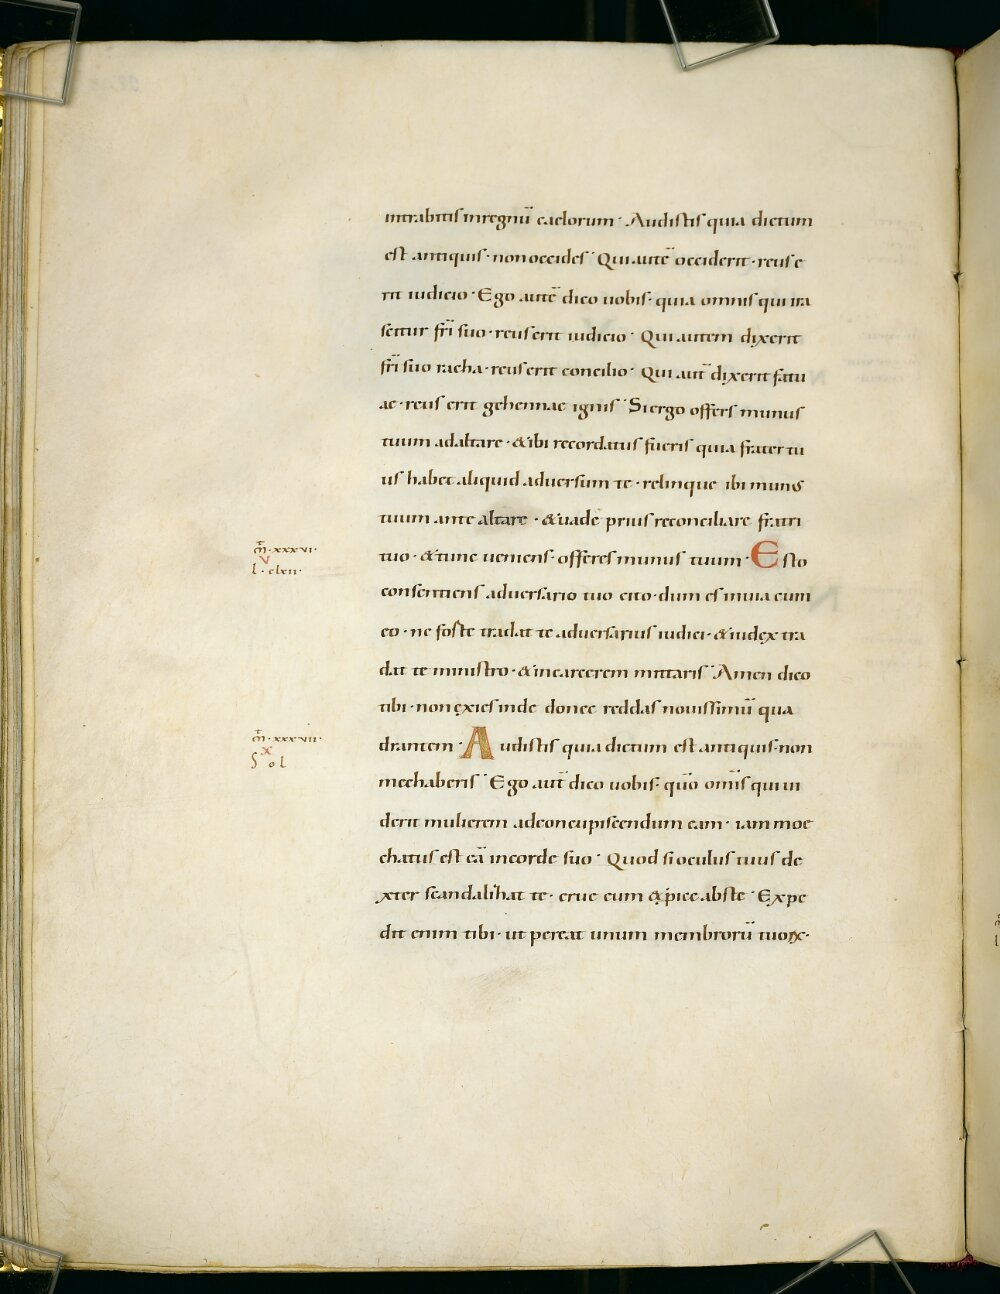 intrabitis inregnū caelorum · Audistis quia dictum
est antiquis · non occides · Qui autē occiderit · reus e
rit iudicio · Ego autē dico uobis · quia omnis qui ira
scitur fr̄i suo · reus erit iudicio · Qui autem dixerit
fr̄i suo racha · reus erit concilio · Qui aut̄ dixerit fatu
ae · reus erit gehennae ignis · Si ergo offers munus
tuum ad altare · & ibi recordatus fueris quia frater tu
us habet aliquid aduersum te · relinque ibi munus
tuum ante altare · & uade prius reconciliare fratri
m̄ · xxxvi ·
V
l · clxii ·
tuo · & tunc ueniens · offeres munus tuum · Esto
consentiens aduersario tuo cito · dum es inuia cum
eo · ne forte tradat te aduersarius iudici · & iudex tra
dat te ministro · & incarcerem mittaris · Amen dico
tibi · non exies inde donec reddas nouissimū qua
m̄ · xxxvii ·
X
S ol
drantem · Audistis quia dictum est antiquis · non
mechaberis · Ego aut̄ dico uobis · quō om̄is qui ui
derit mulierem adconcupiscendum eam · iam moe
chatus est eā incorde suo · Quod si oculus tuus de
xter scandalihat te · erue eum & ꝓice abste · Expe
dit enim tibi · ut pereat unum membrorū tuoꝝ ·